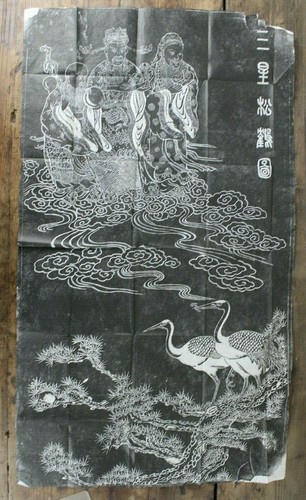 三星松鶴圖